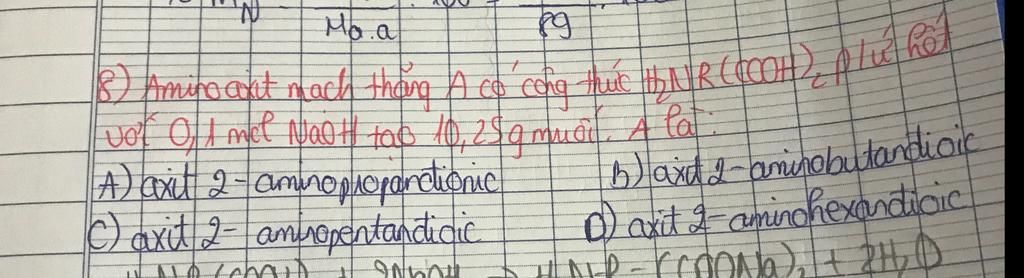 Ma.a 89
8) Amino axit mạch thẳng A có công thức H₂NR(COOH)₂ p/ứ hết
với 0,1 mol NaOH tạo 10,25g muối. A là:
A) axit 2-aminopropanđioic B) axit 2-aminobutanđioic
C) axit 2-aminopentanđioic D) axit 2-aminohexanđioic